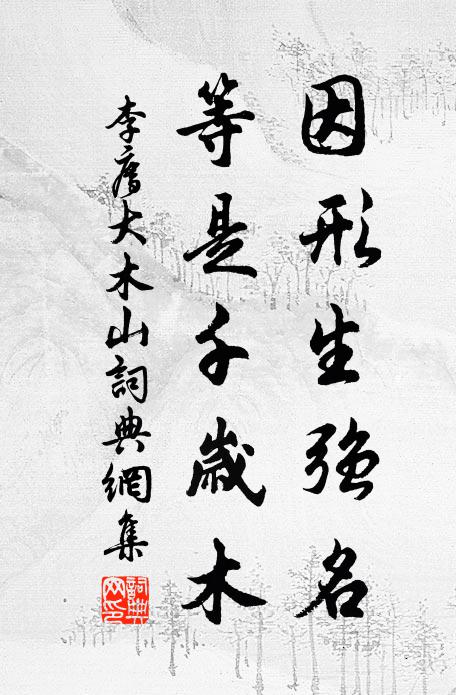 因形生強名
等是千歲木
李廌大木山詞典網集
詞典網印